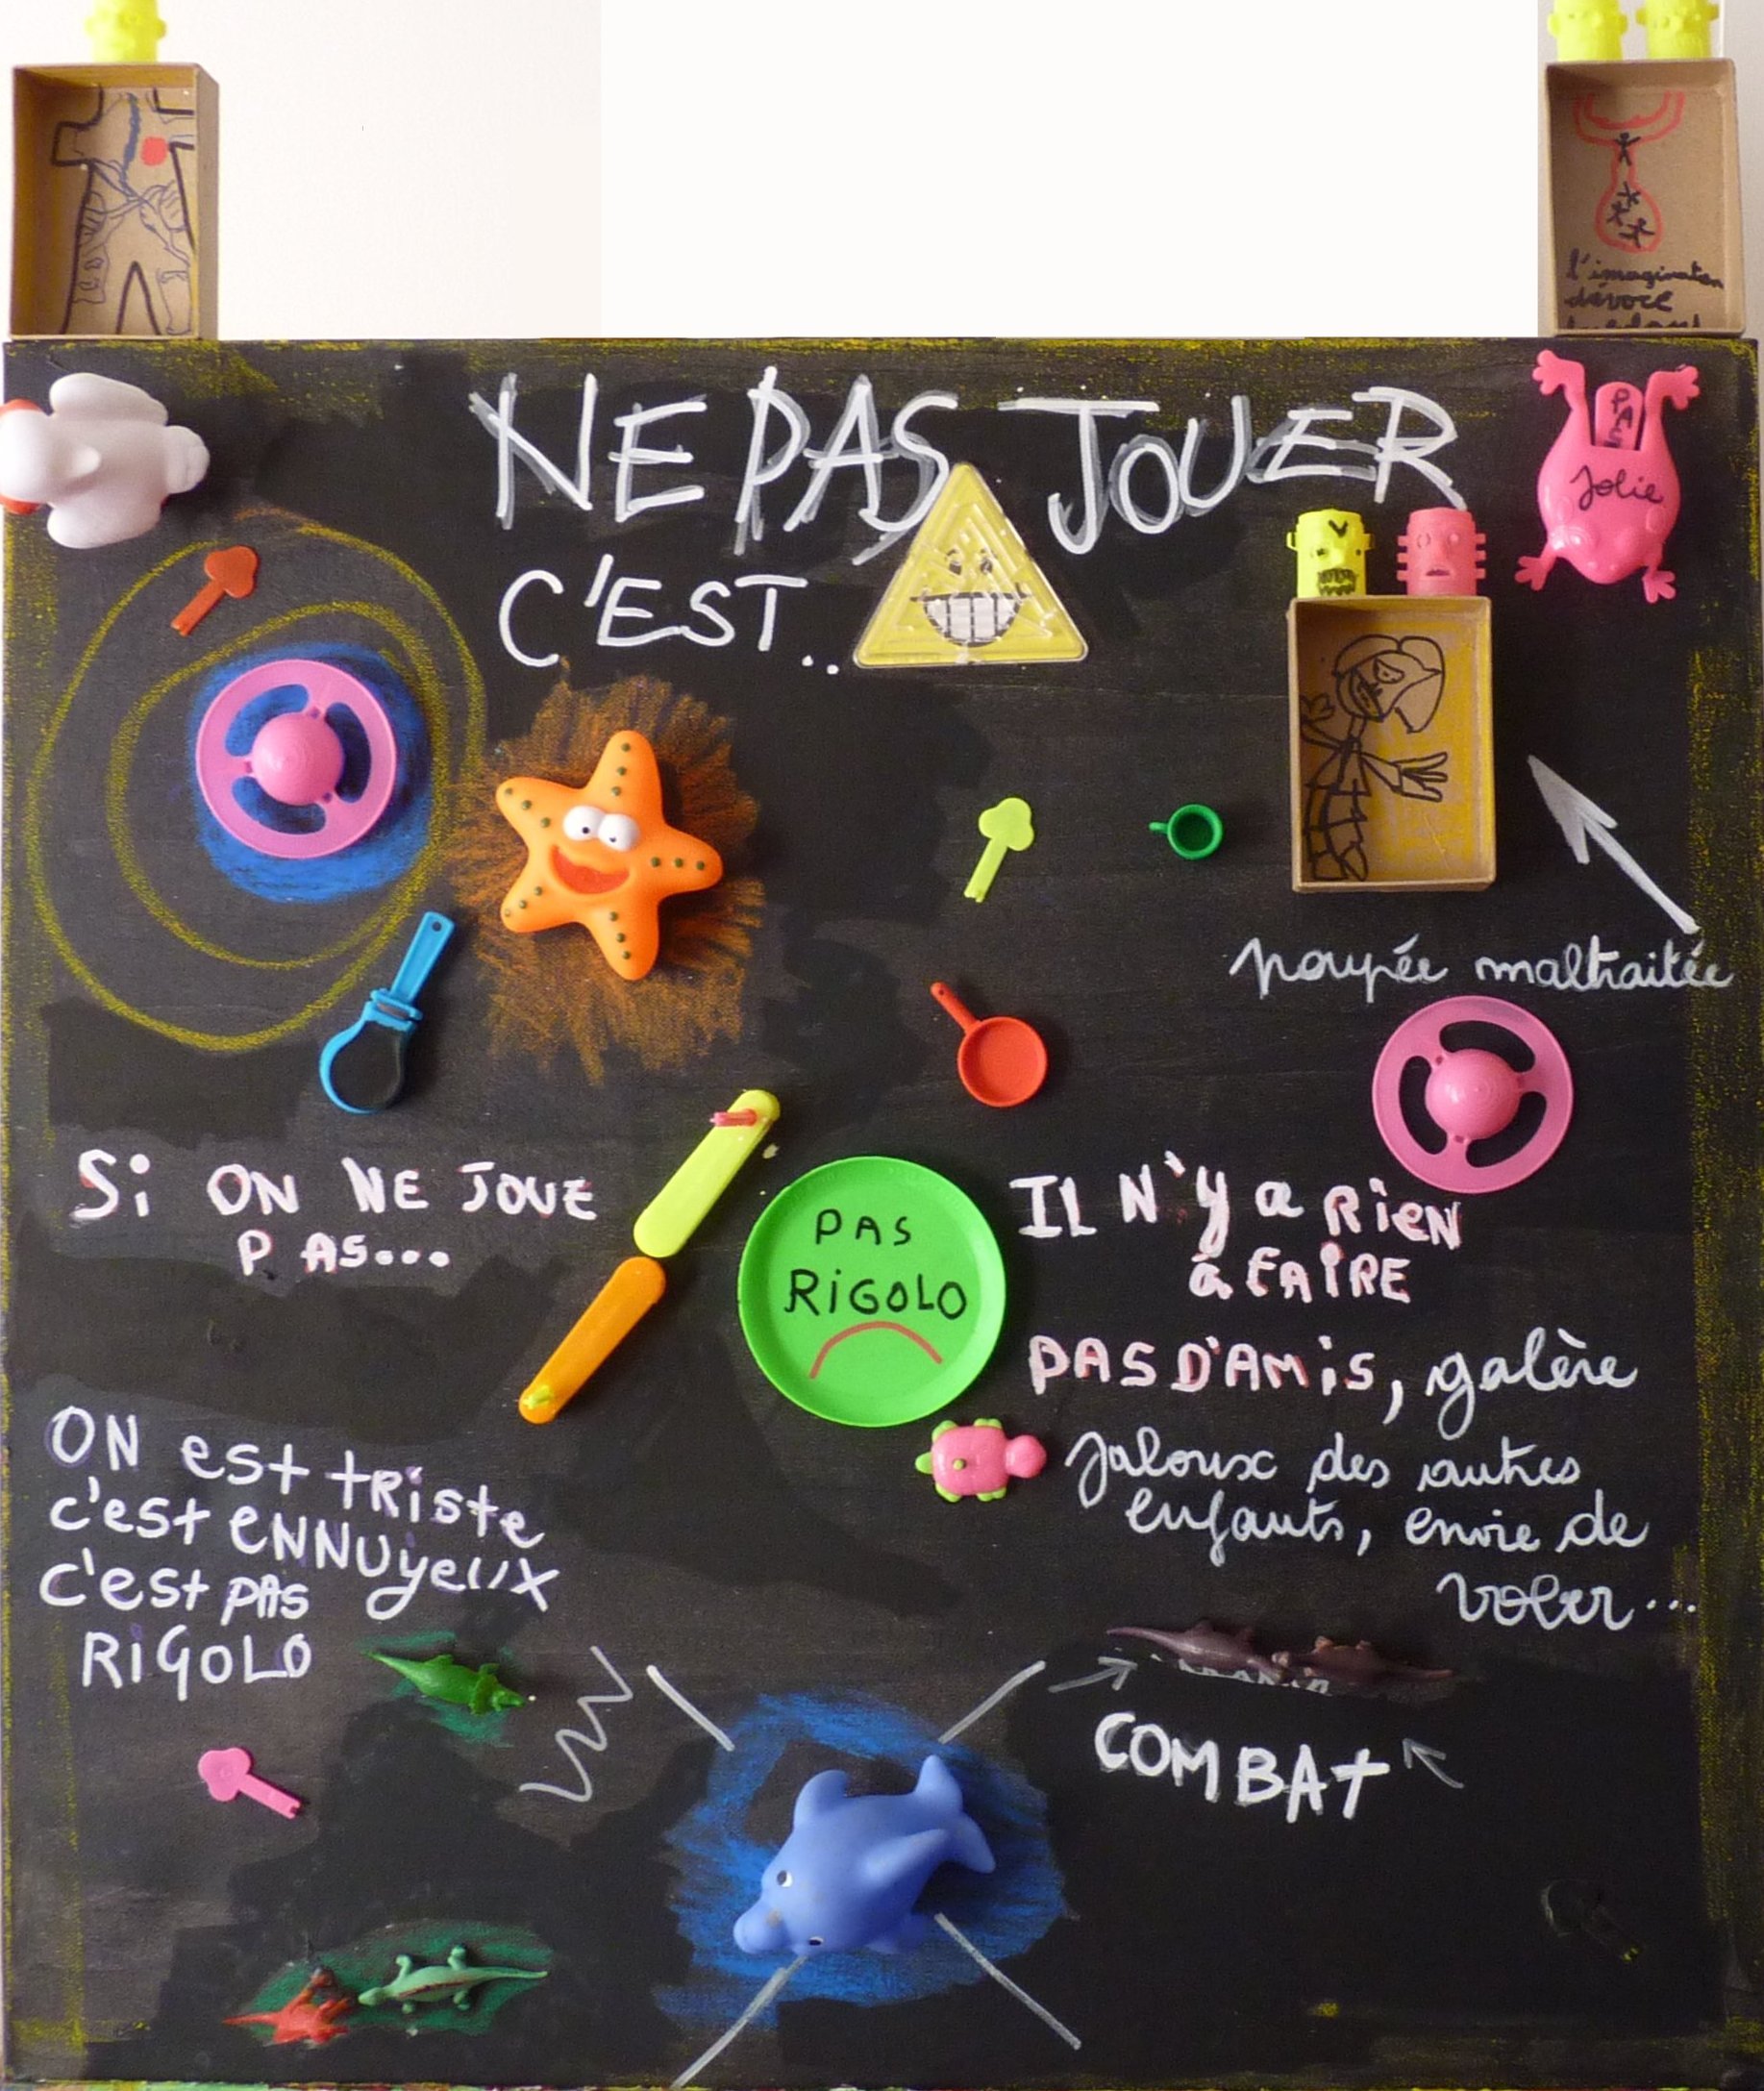 l'imagination
dévore
NE PAS JOUER
C'EST..
PAS
Jolie
poupée maltraitée
Si ON NE JOUE
PAS...
PAS
RiGOLO
IL N'y a RieN
à FAIRE
PAS D'AMiS, galère
Jaloux des autres
enfants, envie de
voler...
ON est tRiste
c'est eNNUyeux
c'est pAs
RiGOLO
COMBAt